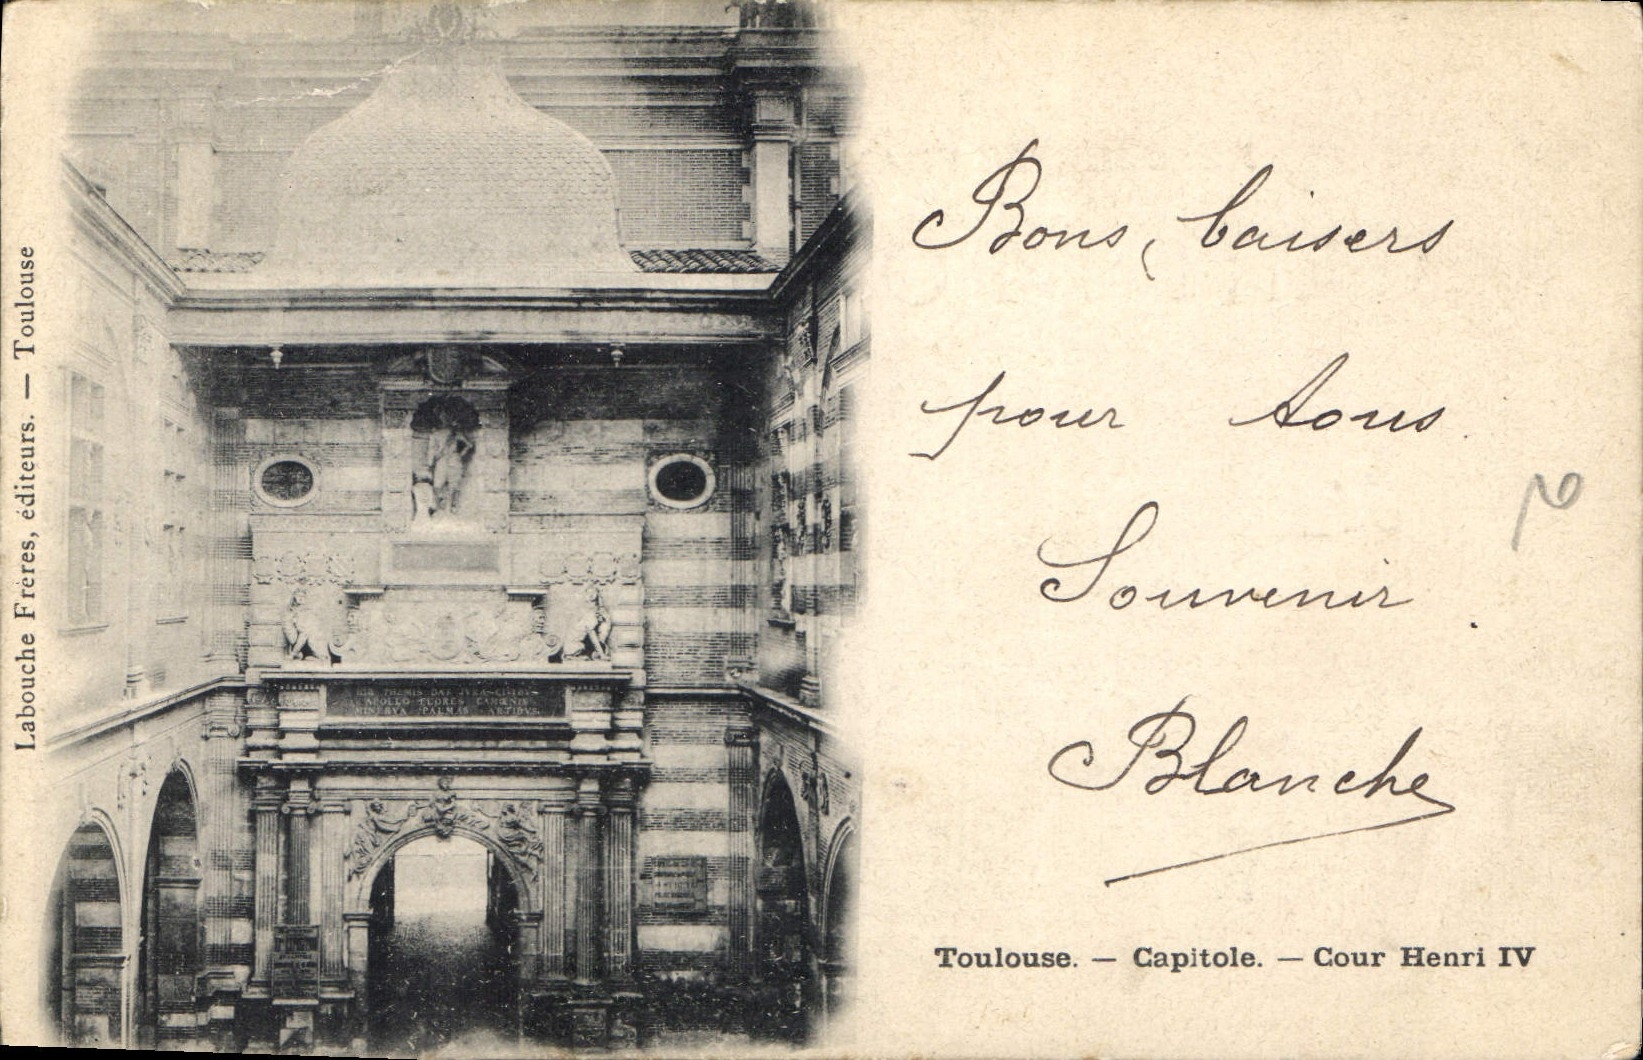 Labouche Frères, éditeurs. — Toulouse
HIC THEMIS DAT JVRA CIVIBVS
APOLLO FLORES CAMŒNIS
MINERVA PALMAS ARTIBVS
Bons baisers
pour tous
Souvenir
Blanche
Toulouse. — Capitole. — Cour Henri IV